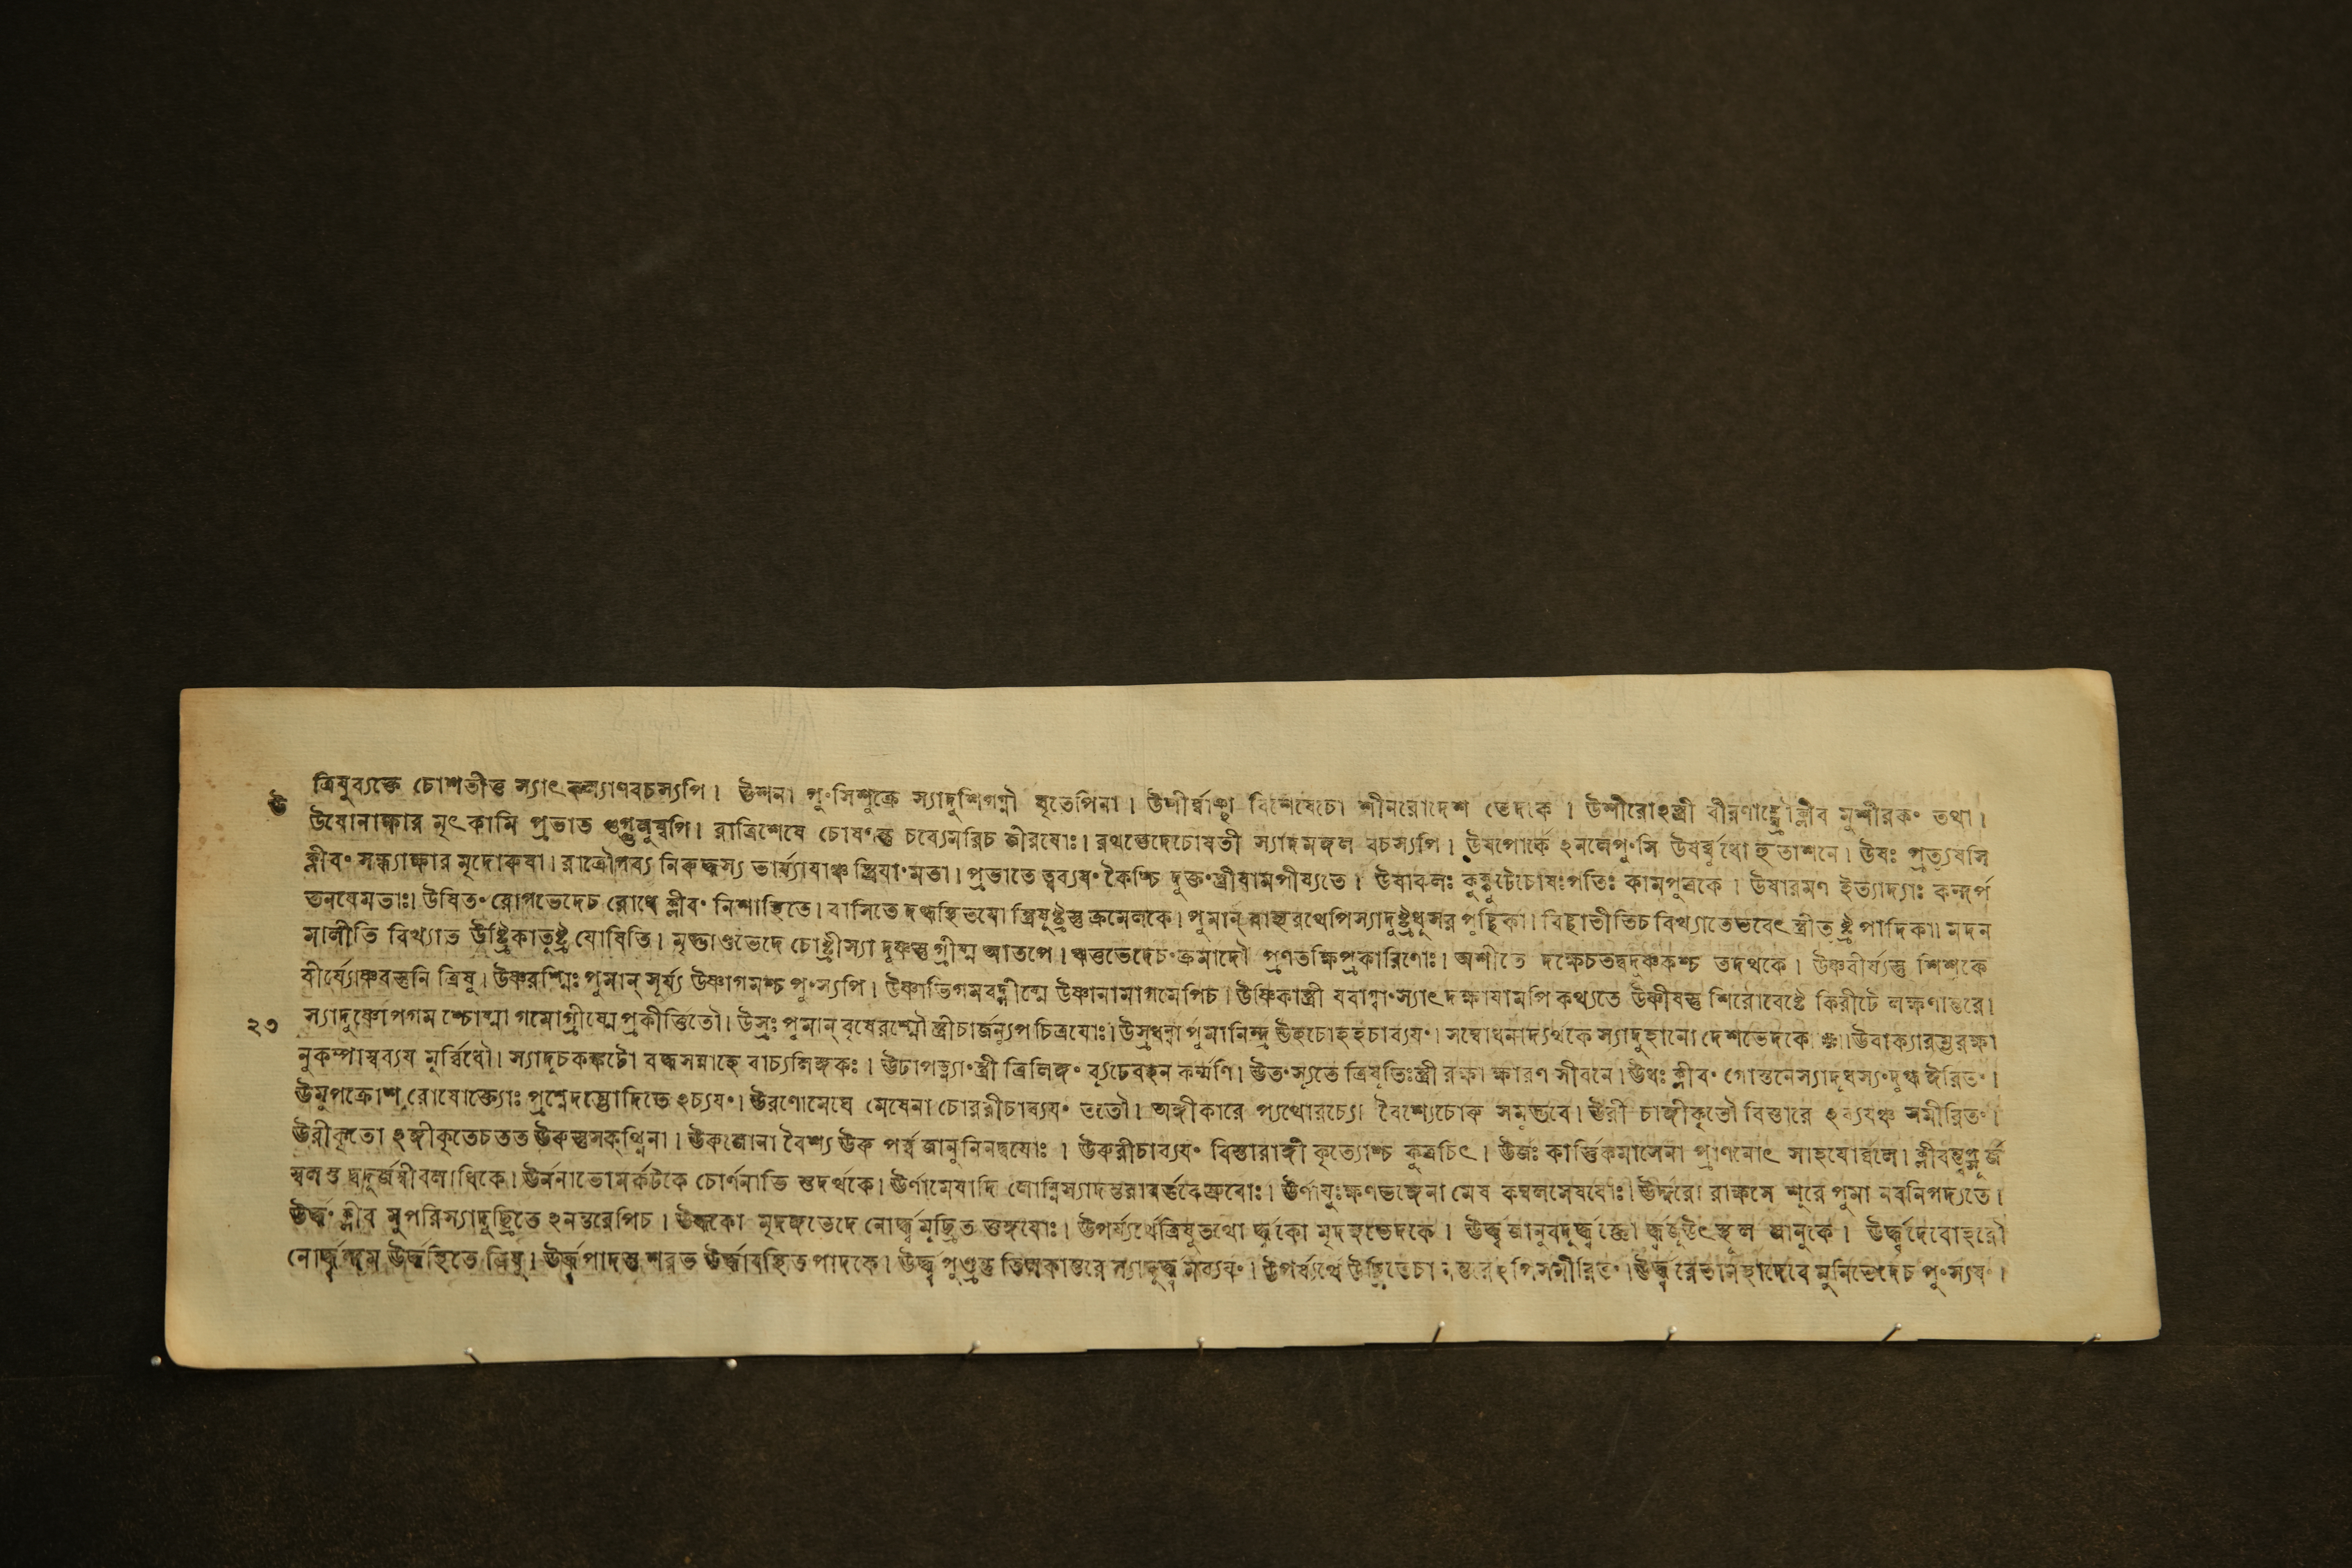 ত্রিষুব্যক্তে চোশতীত্ত স্যাৎকল্যাণবচস্যপি। ঊশনা পুংসিশুক্রে স্যাদুশিগগ্নৌ ঘৃতেপিনা। উশীর্ব্বাঞ্ছা বিশেষেচো শীনরোদেশ ভেদকে। উশীরোঽস্ত্রী বীরণাঙ্ঘ্রৌক্লীব মুশীরকং তথা।
উ
উষোনাক্ষার মৃৎকামি প্রভাত গুগ্গুলুষ্বপি। রাত্রিশেষে চোষংস্তু চব্যেমরিচ জীরযোঃ। রথভেদেচোষতী স্যাদমঙ্গল বচস্যপি। উষপোর্কে ঽনলেপুংসি উষর্ব্বুধো হুতাশনে। উষঃ প্রত্যুষসি
ক্লীবং সন্ধ্যাক্ষার মৃদোরুষা। রাত্রৌগব্য নিরুদ্ধস্য ভার্য্যাযাঞ্চ স্ত্রিযাংমতা। প্রভাতে ত্বব্যযং কৈশ্চি দুক্তংস্ত্রীযামপীষ্যতে। উষাকলঃ কুক্কুটেচোষঃপতিঃ কামপুত্রকে। উষারমণ ইত্যাদ্যাঃ কন্দর্প
তনযেমতাঃ। উষিতং রোগভেদেচ রোধে ক্লীবং নিশাহিতে। বাসিতে দগ্ধহিতযো স্ত্রিষুষ্ট্রস্তু ক্রমেলকে। পুমান্ বাহ্যরথেপিস্যাদুষ্ট্রধূসর পুচ্ছিকা। বিছাতীতিচ বিখ্যাতেভবেৎ স্ত্রীতূষ্ট্র পাদিকা। মদন
মালীতি বিখ্যাত উষ্ট্রিকাতূষ্ট্র যোষিতি। মৃদ্ভাণ্ডভেদে চোষ্ট্রীস্যা দুষ্ণস্তু গ্রীষ্ম আতপে। ঋতুভেদেচংক্রমাদৌ প্রণতক্ষিপ্রকারিণোঃ। অশীতে দক্ষেচতদ্বদুষ্ণকশ্চ তদর্থকে। উষ্ণবীর্য্যস্তু শিশুকে
বীর্য্যোষ্ণবস্তুনি ত্রিষু। উষ্ণরশ্মিঃ পুমান্ সূর্য্য উষ্ণাগমশ্চ পুংস্যপি। উষ্ণাভিগমবদ্গ্রীষ্মে উষ্ণানামাগমেপিচ। উষ্ণিকাস্ত্রী যবাগ্বাংস্যাৎ দক্ষাযামপি কথ্যতে উষ্ণীষস্তু শিরোবেষ্টে কিরীটে লক্ষণান্তরে।
২৩
স্যাদুষ্ণোপগম শ্চোষ্মা গমোগ্রীষ্মেপ্রকীর্ত্তিতৌ। উস্রঃ পুমান্ বৃষেরশ্মৌ স্ত্রীচার্জন্যূপচিত্রযোঃ। উস্রধন্বা পুমানিন্দ্র উহচোহহচাব্যযং। সম্বোধনাদ্যর্থকে স্যাদুহানো দেশভেদকে। ঊবাক্যারম্ভরক্ষা
নুকম্পাস্বব্যয মুর্ব্বিধৌ। স্যাদূচকঙ্কটো বদ্ধসন্নাহে বাচ্যলিঙ্গকঃ। ঊঢাপত্ন্যাংস্ত্রী ত্রিলিঙ্গং ব্যূঢেবহন কর্ম্মণি। ঊতংস্যূতে ত্রিষূতিঃস্ত্রী রক্ষা ক্ষারণ সীবনে। ঊধঃ ক্লীবং গোস্তনেস্যাদূধস্যংদুগ্ধ ঈরিতং।
ঊমুপক্রোশ রোষোক্ত্যোঃ প্রশ্নেদম্ভোদিতে ঽব্যযং। ঊরণোমেঘে মেষেনা চোররীচাব্যযং ততৌ। অঙ্গীকারে প্যথোরচ্যো বৈশ্যেচোরু সমুদ্ভবে। ঊরী চাঙ্গীকৃতৌ বিস্তারে ঽব্যযঞ্চ সমীরিতং।
ঊরীকৃতো ঽঙ্গীকৃতেচতত ঊরুস্তুসক্থ্নিনা। ঊরুজোনা বৈশ্য ঊরু পর্ব্ব জানুনিনদ্বযোঃ। ঊরুরীচাব্যযং বিস্তারাঙ্গী কৃত্যোশ্চ কুত্রচিৎ। ঊর্জঃ কার্ত্তিকমাসেনা প্রাণনোৎ সাহযোর্ব্বলে। ক্লীবন্ত্বপ্সূর্জ
স্বলস্তু দ্বদূর্জস্বীবলাধিকে। ঊর্ননাভোমর্কটকে চোর্ণনাভি স্তদর্থকে। ঊর্ণামেষাদি লোম্নিস্যাদন্তরাবর্ত্তকেভ্রুবোঃ। ঊর্ণাযুঃক্ষণভঙ্গেনা মেষ কম্বলমেষযোঃ। ঊর্দ্দরো রাক্ষসে শূরে পুমা নবনিগদ্যতে।
ঊর্দ্ধং ক্লীব মুপরিস্যাদুচ্ছ্রিতে ঽনন্তরেপিচ। ঊর্দ্ধকো মৃদঙ্গভেদে নোর্দ্ধ্বমুচ্ছ্রিত তুঙ্গযোঃ। উপর্য্যর্থেত্রিষুতথো র্দ্ধ্বকো মৃদঙ্গভেদকে। ঊর্দ্ধ্বজানুবদূর্দ্ধ্বজ্ঞো র্দ্ধ্বজ্ঞুউৎস্থূল জানুকে। ঊর্দ্ধ্বদেবোহরৌ
নোর্দ্ধ্বন্দম ঊর্দ্ধ্বস্থিতে ত্রিষু। ঊর্দ্ধ্বপাদস্তু শরভ ঊর্দ্ধ্বাবস্থিত পাদকে। ঊর্দ্ধ্বপুণ্ড্রস্তু তিলকান্তরে স্যাদূর্দ্ধ্ব মব্যযং। উপর্য্যর্থে উচ্ছ্রিতেচা নন্তরেঽপিসমীরিতং। ঊর্দ্ধ্বরেতামহাদেবে মুনিভেদেচ পুংস্যযং।